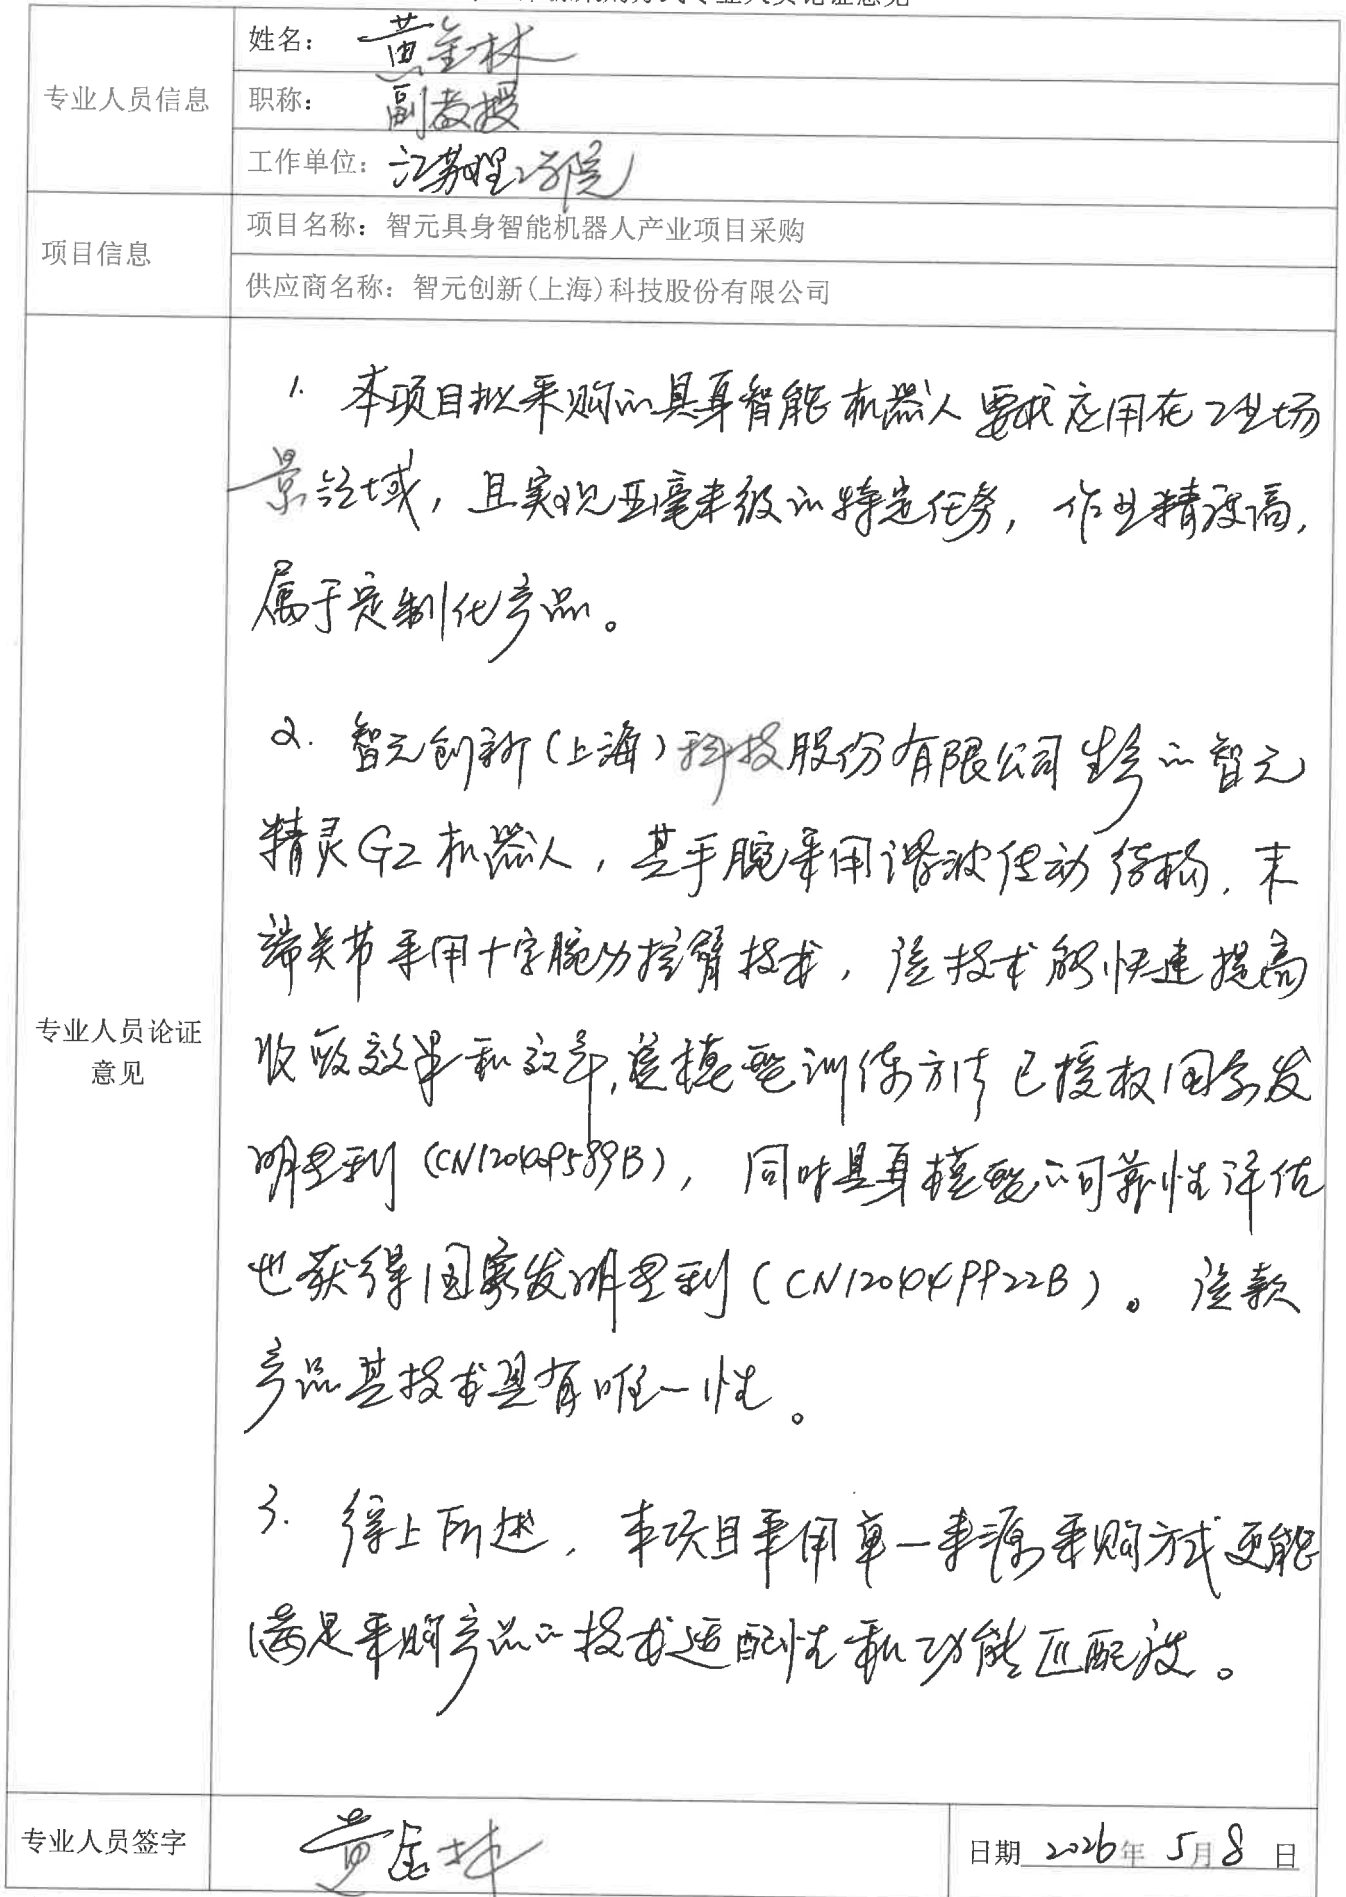 专业人员论证意见
专业人员信息
姓名： 黄金林
职称： 副教授
工作单位： 江苏理工学院
项目信息
项目名称：智元具身智能机器人产业项目采购
供应商名称：智元创新(上海)科技股份有限公司
专业人员论证
意见
1. 本项目拟采购的具身智能机器人要求应用在工业场
景领域，且实现亚毫米级的特定任务，作业精度高，
属于定制化产品。
2. 智元创新（上海）科技股份有限公司生产的智元
精灵G2机器人，其手腕采用谐波传动结构，末
端关节采用十字腕力控臂技术，该技术能快速提高
收敛效果和效率，该模型训练方法已授权国家发
明专利（CN120409589B），同时具身模型的可靠性评估
也获得国家发明专利（CN120449922B）。该款
产品其技术具有唯一性。
3. 综上所述，本项目采用单一来源采购方式更能
满足采购产品的技术适配性和功能匹配度。
专业人员签字
黄金林
日期 2026年 5月 8 日